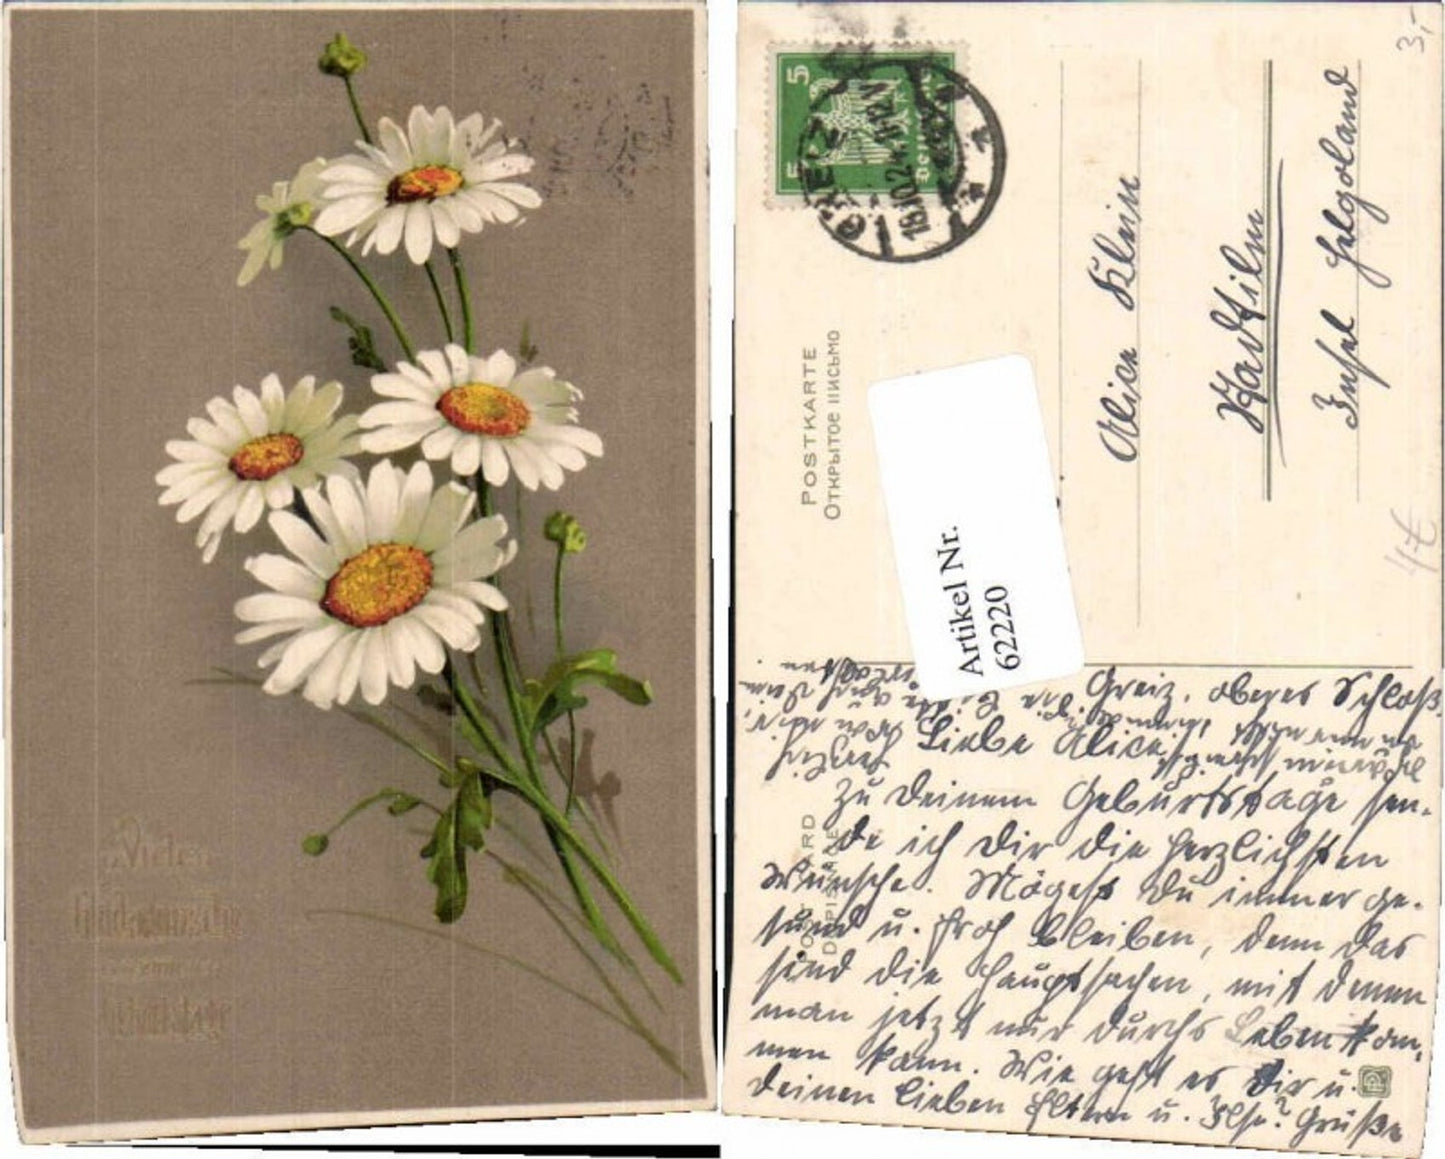 Vielen
Glückwünsche
zum
Geburtstage
5
5
GREIZ
18.10.24 11-12 V
POSTKARTE
Открытое письмо
POST CARD
Artikel Nr.
62220
Alice Klein
Insel Helgoland
3,-
4€
Greiz, oberes Schloß.
Liebe Alice,
zu Deinem Geburtstage sen-
de ich Dir die herzlichsten
Wünsche. Mögest Du immer ge-
sund u. froh bleiben, denn das
sind die Hauptsachen, mit denen
man jetzt nur durchs Leben kom-
men kann. Wie geht es Dir u.
Deinen lieben Eltern u. Ilse? Grüße